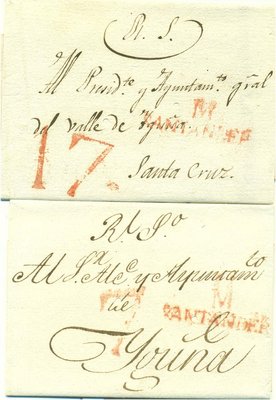 R. S.
Al Presid.te y Ayuntam.to gral
M
del Valle de Yguña.
SANTANDER
17.
Santa Cruz.
Rl. So.
Al Sr. Alce y Ayuntam.to
de
M
7
SANTANDER
Youña